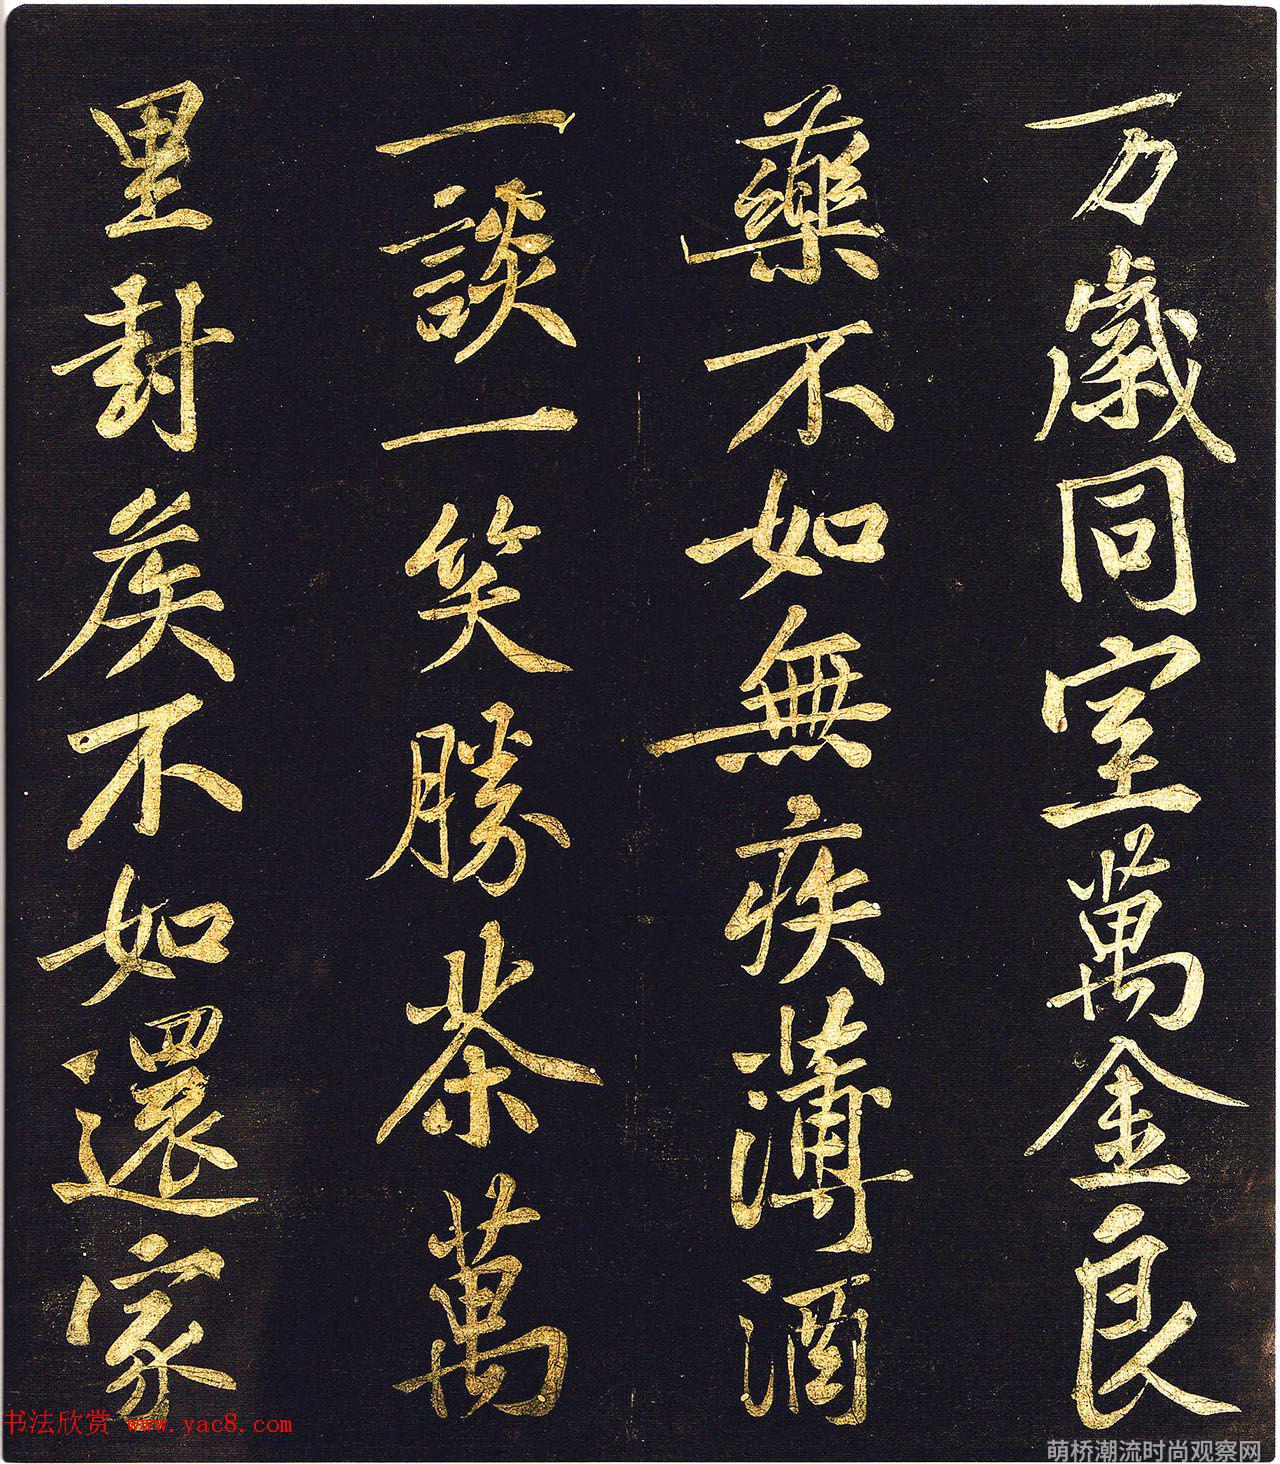 万歲同室萬金良
藥不如無疾薄酒
一談一笑勝茶萬
里封矦不如還家
书法欣赏 www.yac8.com
萌桥潮流时尚观察网